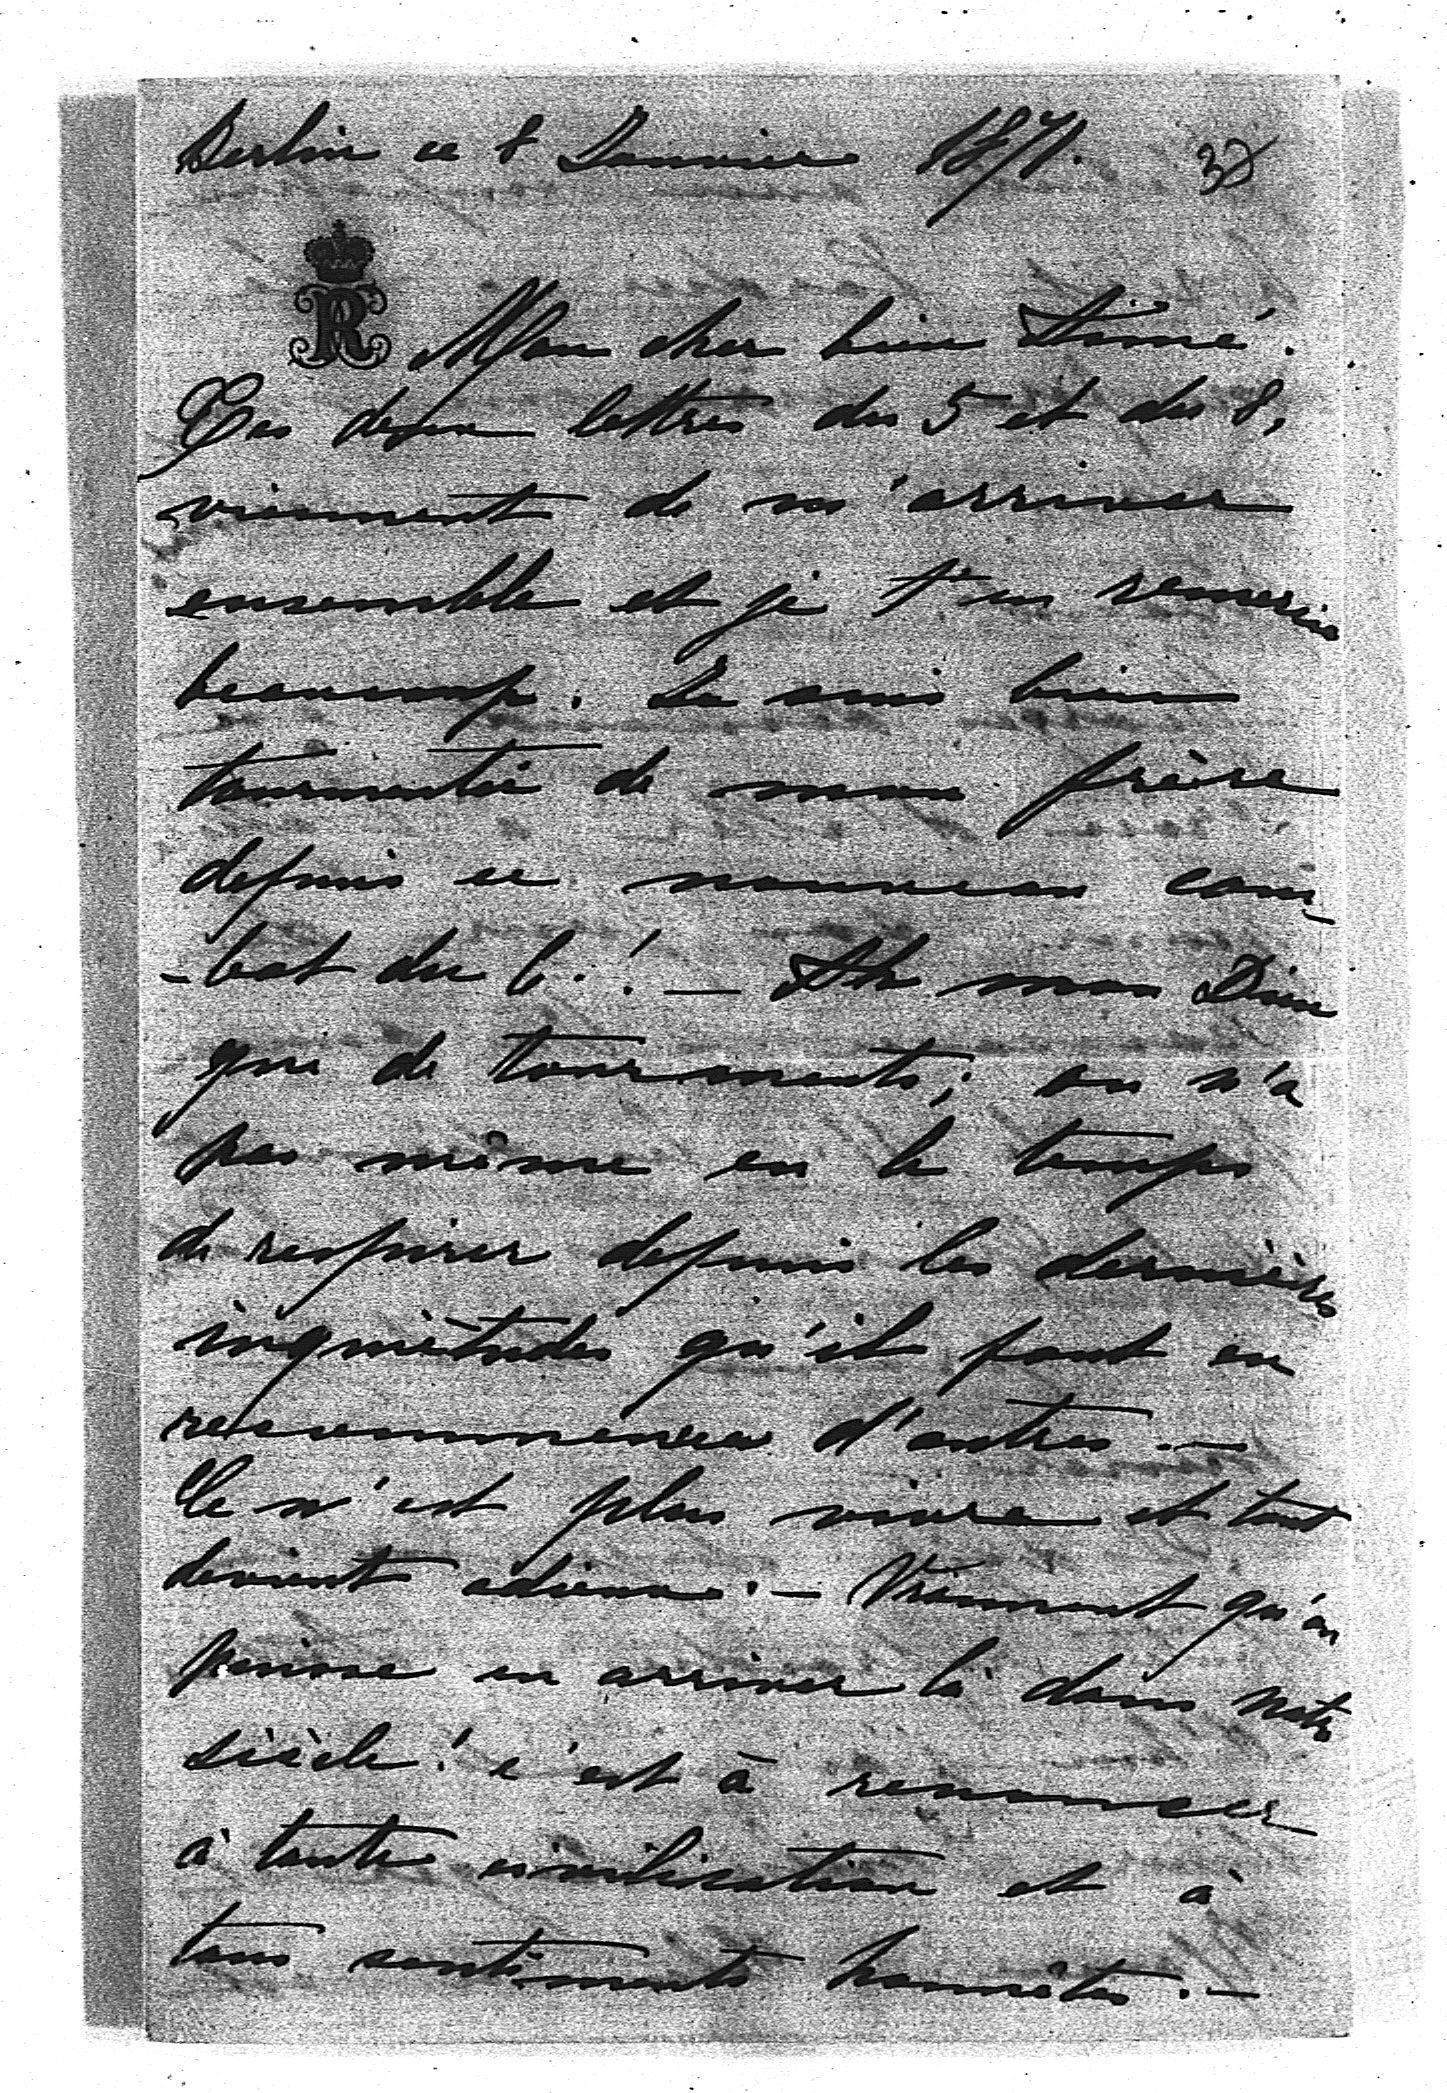 Berlin ce 8 Janvier 1871.
37
R
Mon cher bien Aimé.
Tes deux lettres du 5 et du 8,
viennent de m'arriver
ensemble et je t'en remercie
beaucoup. Je suis bien
tourmentée de mon frère
depuis ce nouveau com-
-bat du 6.! — Ah mon Dieu
que de tourments; on n'a
pas même eu le temps
de respirer depuis les dernières
inquiètudes qu'il faut en
recommencer d'autres. —
Ce n'est plus vivre et tout
devient odieux. — Vraiment qu'on
puisse en arriver là dans notre
siècle! c'est à renoncer
à toute civilisation et à
tous sentiments honnêtes. —